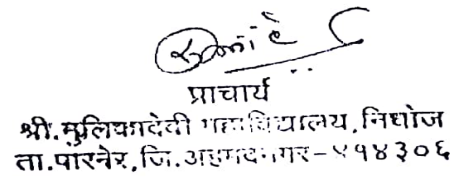 प्राचार्य
श्री.मुलिकादेवी महाविद्यालय, निघोज
ता.पारनेर, जि.अहमदनगर-४१४३०६